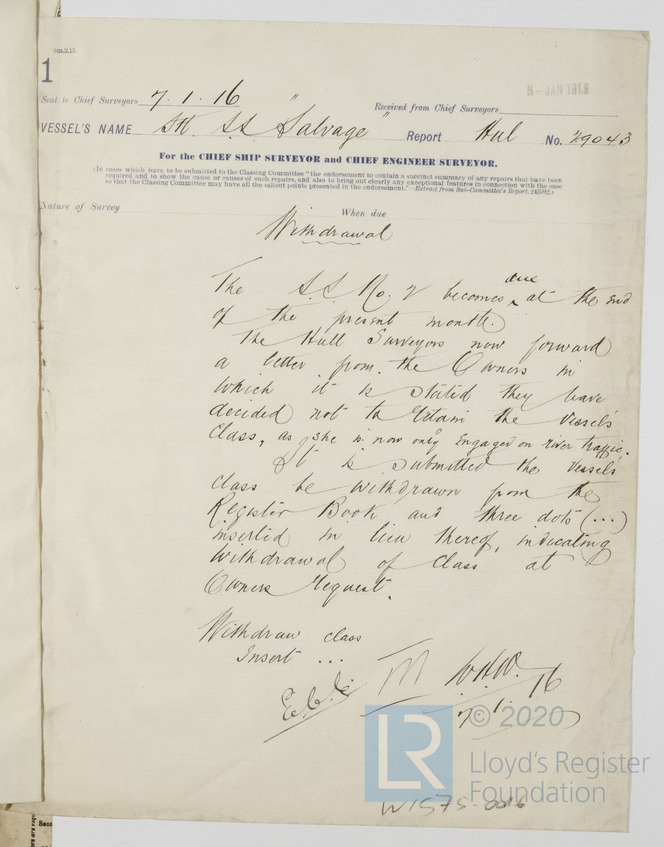 1
Sent to Chief Surveyors 7.1.16
Received from Chief Surveyors
8-JAN 1916
VESSEL'S NAME S.S. Salvage " Report Hul No. 29043
For the CHIEF SHIP SURVEYOR and CHIEF ENGINEER SURVEYOR.
(In cases which have to be submitted to the Classing Committee "the endorsement to contain a succinct summary of any repairs that have been
required and to show the cause or causes of such repairs, and also to bring out clearly any exceptional features in connection with the case
so that the Classing Committee may have all the salient points presented in the endorsement."—Extract from Sub-Committee's Report,
Nature of Survey When due
Withdrawal
The S.S. No. 2 becomes due at the end
of the present month.
The Hull Surveyors now forward
a letter from the Owners in
which it is stated they have
decided not to retain the vessel's
class, as she is now only engaged on river traffic.
It is submitted the vessel's
class be withdrawn from the
Register Book and three dots (...)
inserted in lieu thereof, indicating
withdrawal of class at
Owners request.
Withdraw class
Insert ...
7.1.16
© 2020
LR
Lloyd's Register
Foundation
W1575-0016